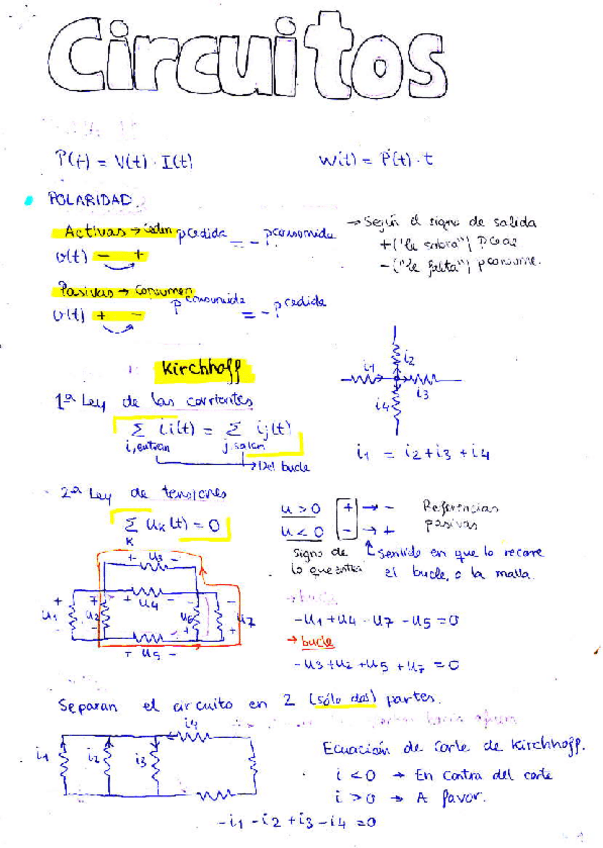 Circuitos
P(t) = V(t) · I(t)
W(t) = P(t) · t
POLARIDAD
Activas → ceden pcedida = - pconsumida
v(t) - +
→ Según el signo de salida
+ ("le sobra") pcede
- ("le falta") pconsume.
Pasivas → Consumen pconsumida = - pcedida
v(t) + -
Kirchhoff
1ª Ley de las corrientes
Σ ii(t) = Σ ij(t)
i, entran j, salen
→ Del bucle
i1 i2 i3 i4
i1 = i2 + i3 + i4
2ª Ley de tensiones
Σ uk(t) = 0
k
u > 0 + → -
u < 0 - → +
Referencias
pasivas
Signo de
lo que entra
Sentido en que lo recorre
el bucle, o la malla.
+ u3 -
+ u4 -
u1 u2 u6 u7
+ u5 -
→ bucle
-u1 + u4 - u7 - u5 = 0
→ bucle
-u3 + u2 + u5 + u7 = 0
Separan el circuito en 2 (sólo dos) partes.
i4
i1 i2 i3
Ecuación de corte de Kirchhoff.
i < 0 → En contra del corte
i > 0 → A favor.
-i1 - i2 + i3 - i4 = 0